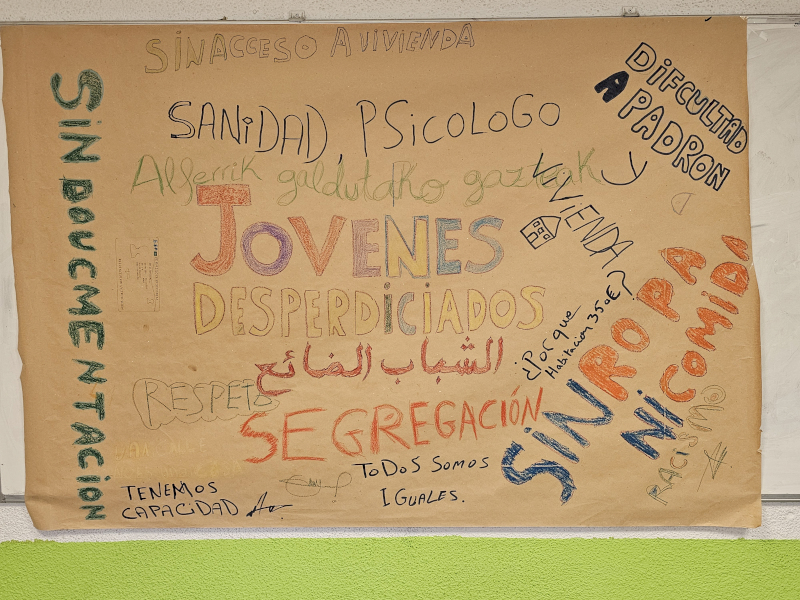 SIN ACCESO A VIVIENDA
SANIDAD, PSICOLOGO
DIFCULTAD
A PADRON
Y
VIVIENDA
Alferrik galdutako gazteak
JOVENES
DESPERDICIADOS
الشباب الضائع
SIN DOUCMENTACION
¿Por que
Habitacion 350€?
SIN ROPA
NI COMIDA
RESPETO
SEGREGACIÓN
RACISMO
TODOS SOMOS
IGUALES.
TENEMOS
CAPACIDAD